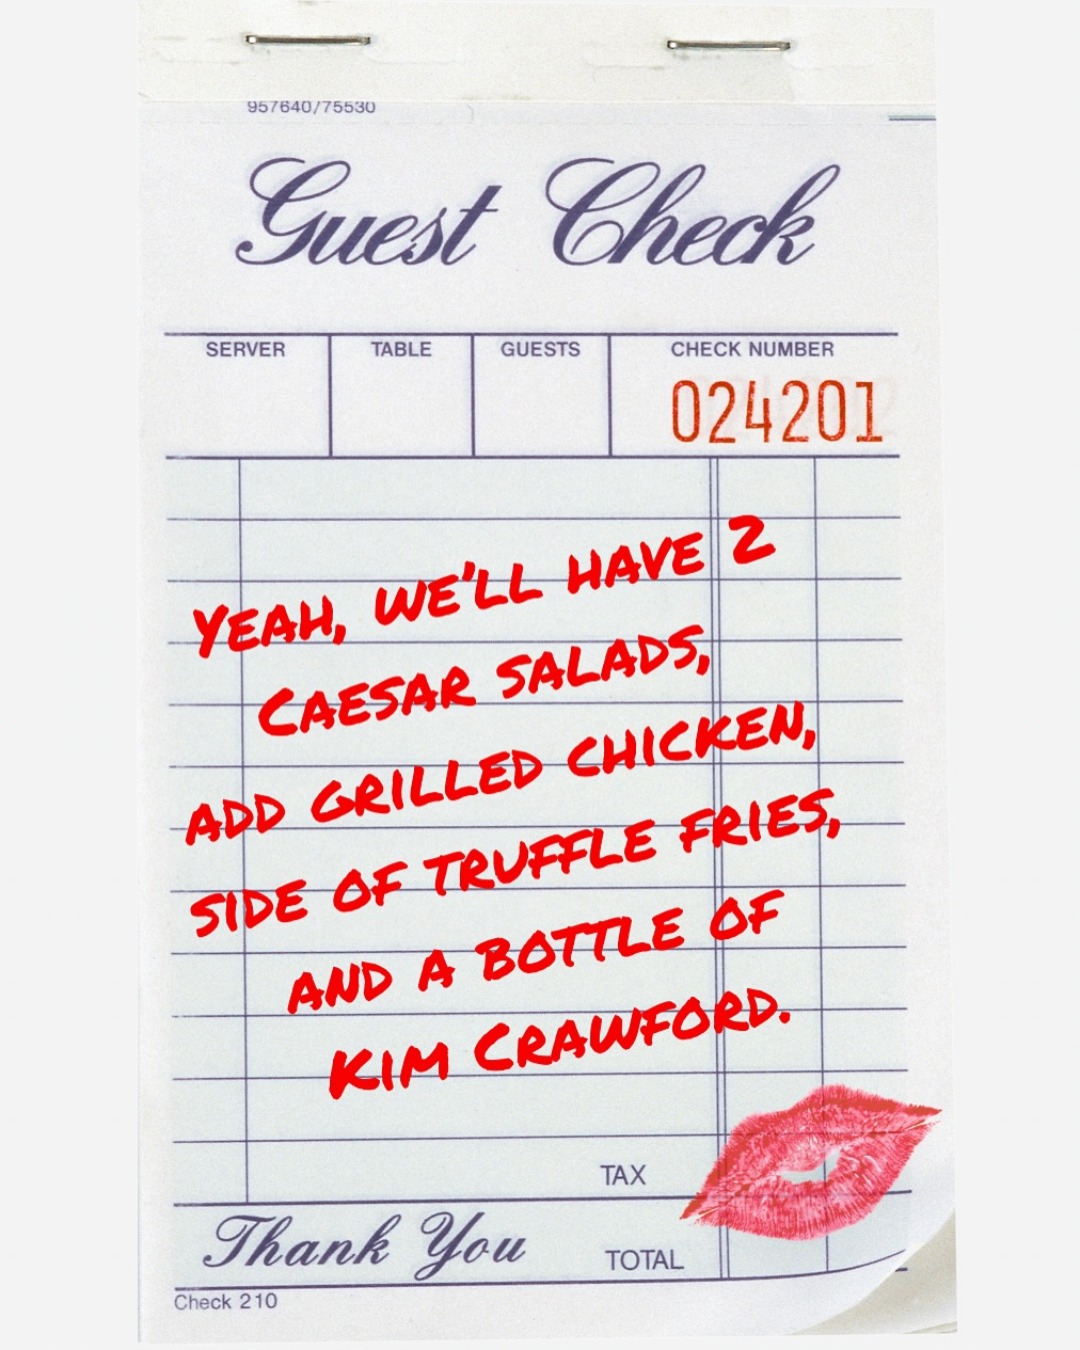 957640/75530
Guest Check
SERVER TABLE GUESTS CHECK NUMBER
024201
YEAH, WE'LL HAVE 2
CAESAR SALADS,
ADD GRILLED CHICKEN,
SIDE OF TRUFFLE FRIES,
AND A BOTTLE OF
KIM CRAWFORD.
TAX
Thank You TOTAL
Check 210